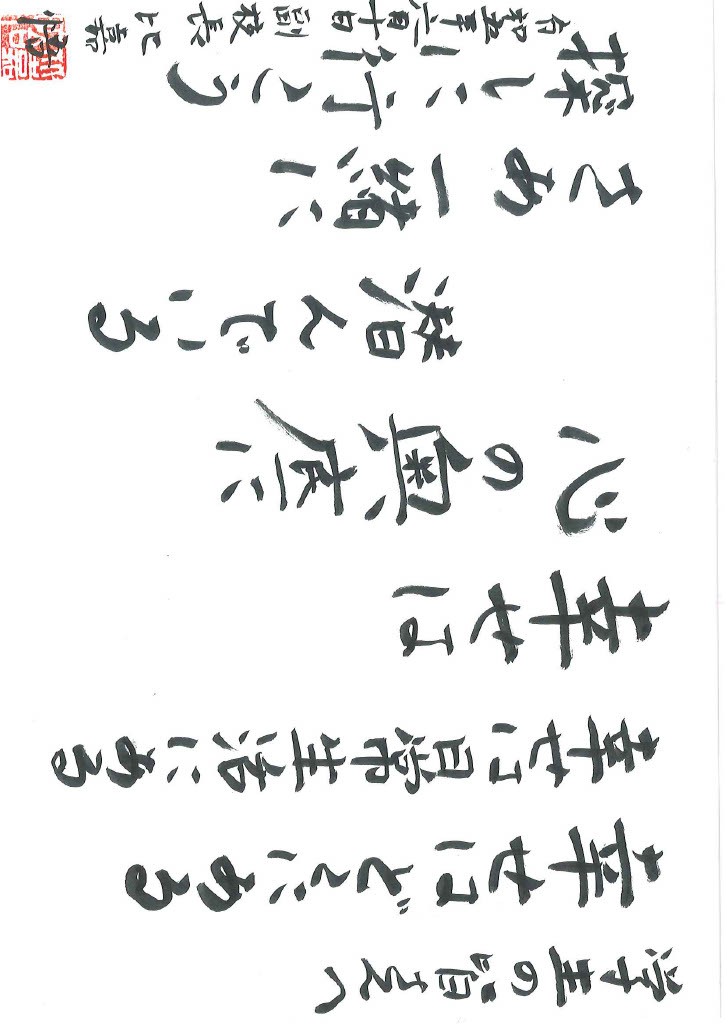 学生の皆さんへ
幸せはどこにある
幸せは日常生活にある
幸せは
心の奥底に
潜んでいる
さあ一緒に
探しに行こう
令和五年六月十日 副校長 比嘉 悟